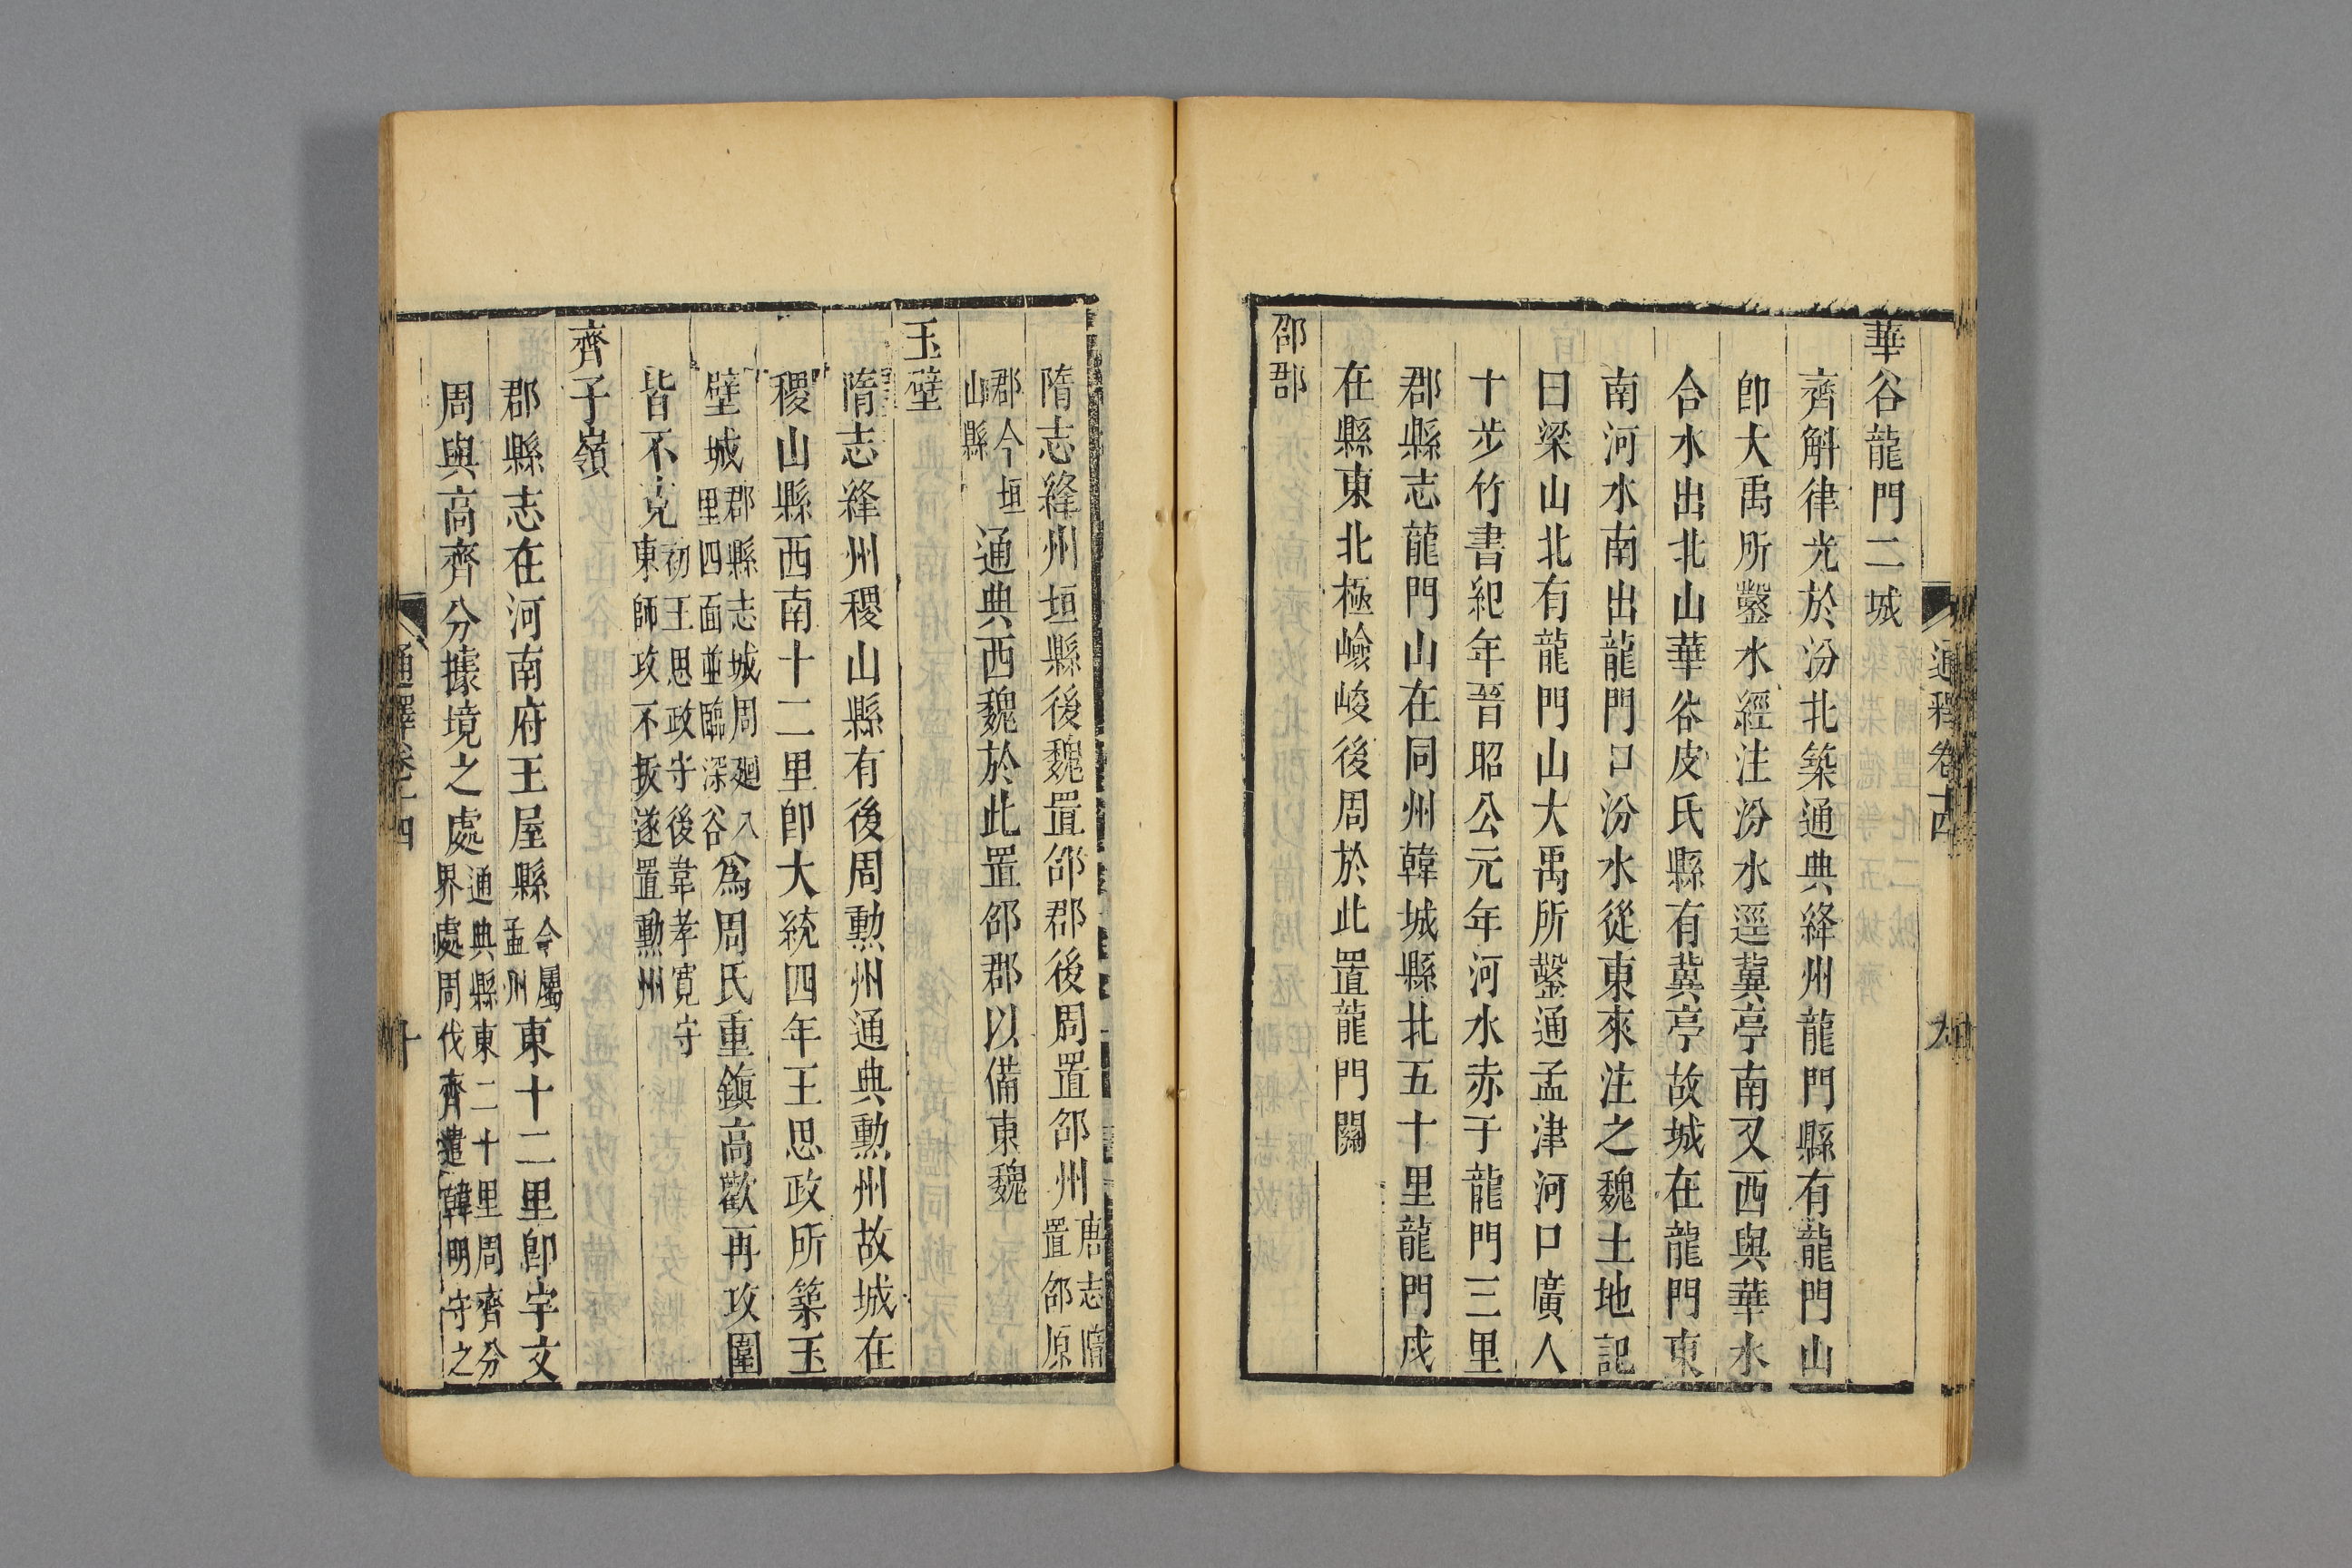 通釋卷十四
九
華谷龍門二城
齊斛律光於汾北築通典絳州龍門縣有龍門山
卽大禹所鑿水經注汾水逕冀亭南又西與華水
合水出北山華谷皮氏縣有冀亭故城在龍門東
南河水南出龍門口汾水從東來注之魏土地記
曰梁山北有龍門山大禹所鑿通孟津河口廣人
十步竹書紀年晉昭公元年河水赤于龍門三里
郡縣志龍門山在同州韓城縣北五十里龍門戍
在縣東北極嶮峻後周於此置龍門關
邵郡
隋志絳州垣縣後魏置邵郡後周置邵州唐志隋置邵原
郡今垣山縣通典西魏於此置邵郡以備東魏
玉壁
隋志絳州稷山縣有後周勲州通典勲州故城在
稷山縣西南十二里卽大統四年王思政所築玉
壁城郡縣志城周廻八里四面並臨深谷爲周氏重鎭高歡再攻圍
皆不克初王思政守後韋孝寬守東師攻不拔遂置勲州
齊子嶺
郡縣志在河南府王屋縣今屬孟州東十二里卽宇文
周與高齊分據境之處通典縣東二十里周齊分界處周伐齊遣韓明守之
通釋卷十四
十